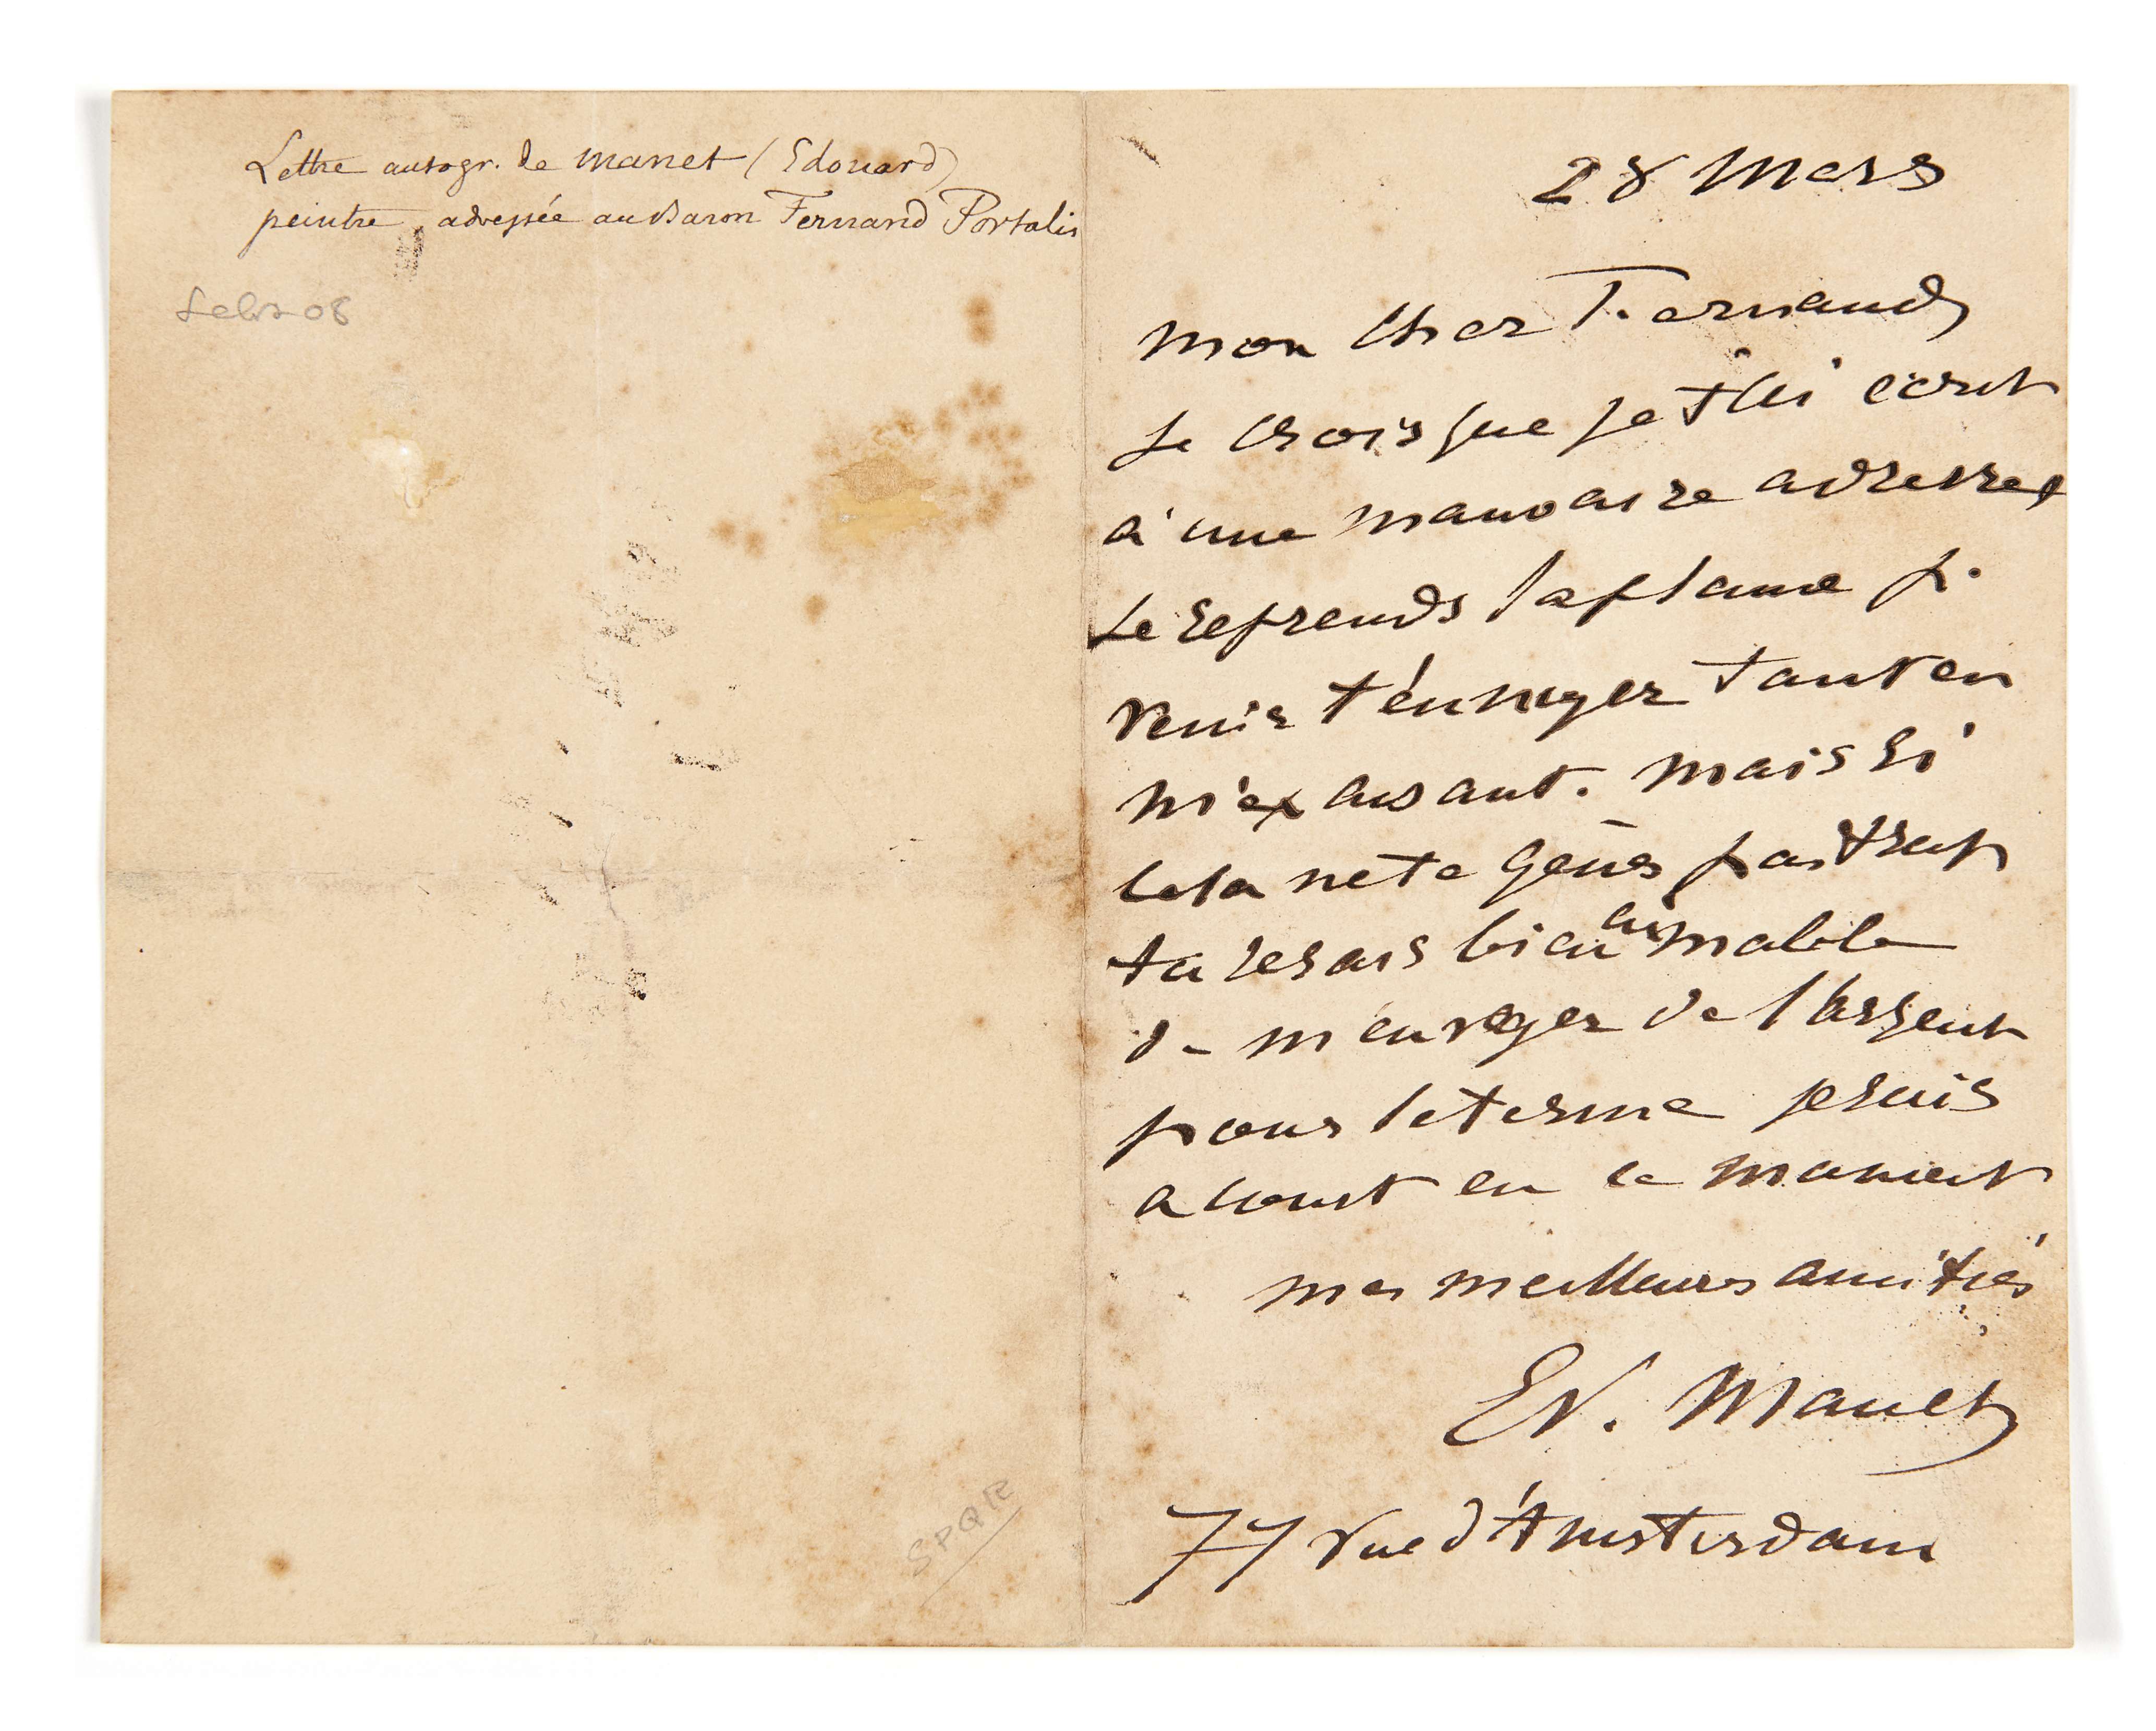 Lettre autogr. de Manet (Edouard)
peintre, adressée au Baron Fernand Portalis
SPQR
28 Mars
Mon cher Fernand
Je crois que je t'ai écrit
à une mauvaise adresse
Je reprends la plume p.
venir t'ennuyer tout en
m'excusant. Mais si
cela ne te gène pas trop
tu serais bien aimable
de m'envoyer de l'argent
pour le terme je suis
a court en ce moment
mes meilleures amitiés
Ed. Manet
77 rue d'Amsterdam